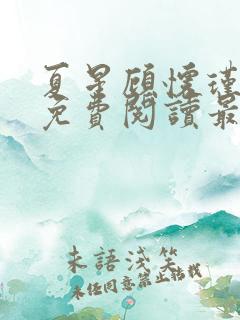 夏星顧懷瑾
免費閱讀最
未語淺笑
未经同意禁止转载